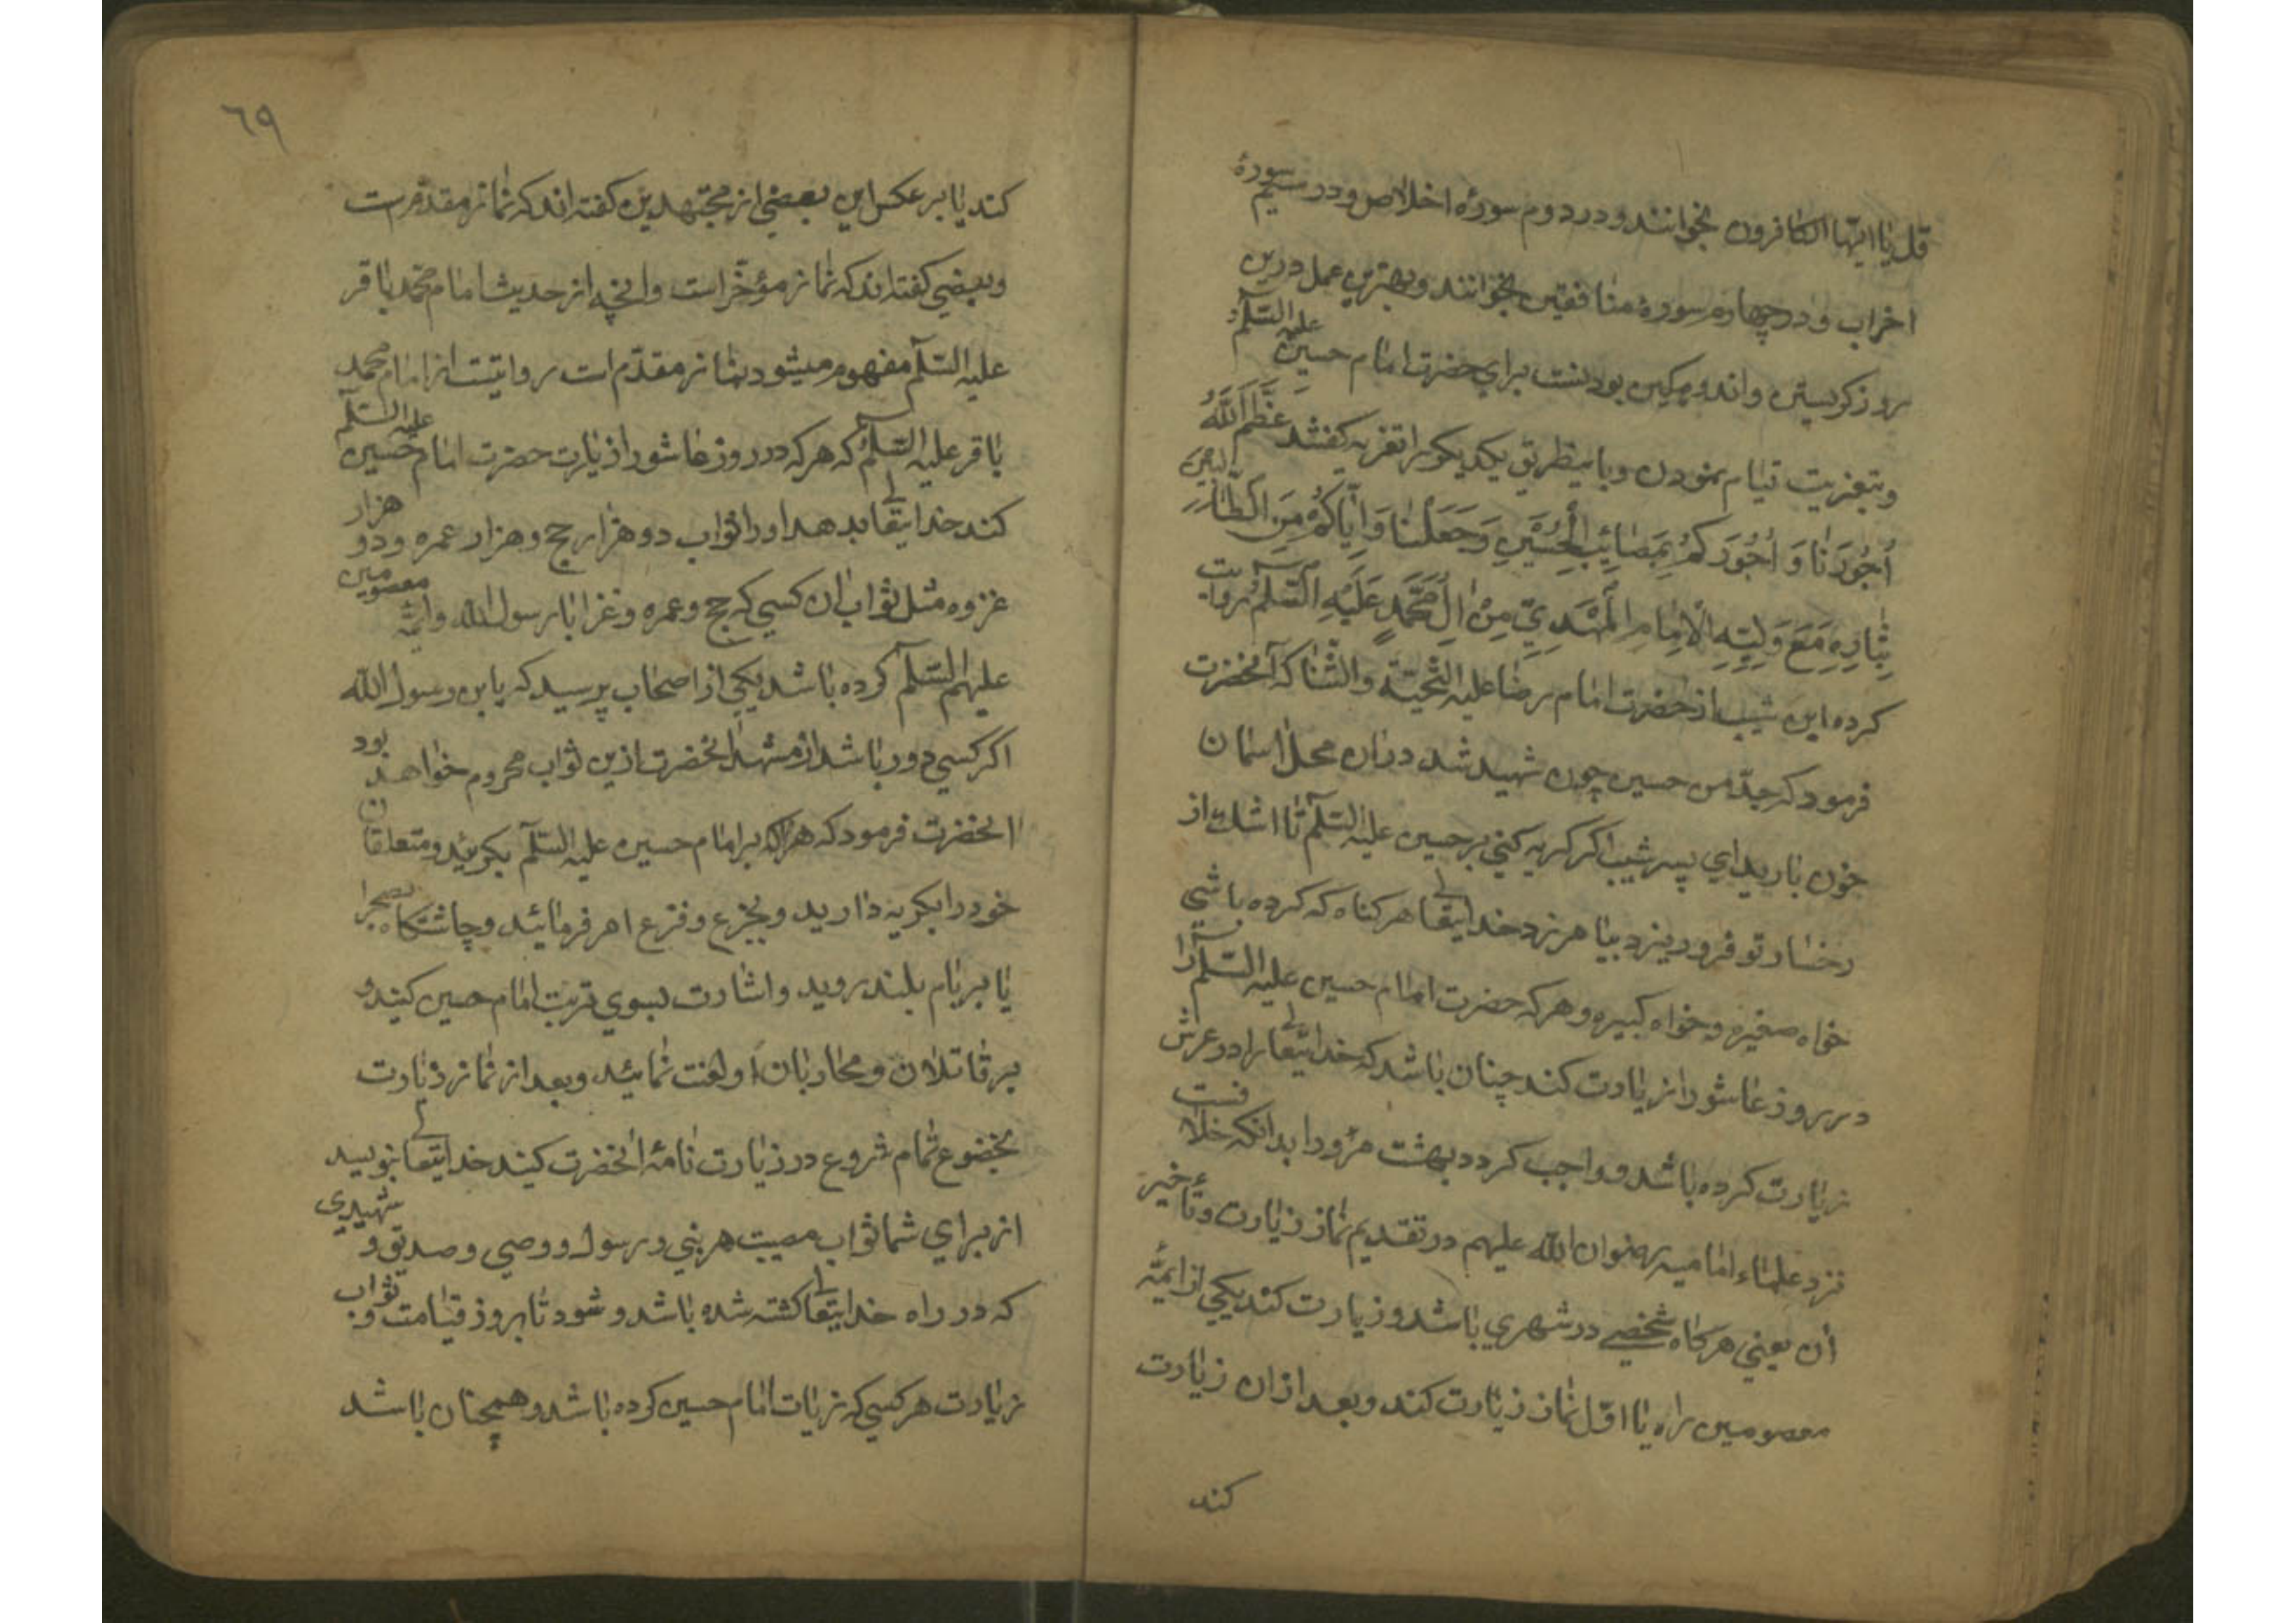 قل یا ایها الکافرون بخوانند و در دوم سورهٔ اخلاص و در سیم سورهٔ
اخراب و در چهارم سورهٔ منافقین بخوانند و بهترین عمل درین
روز کریستن و اندوهکین بودنست برای حضرت امام حسین علیه السلم
و بتعزیت قیام نمودن و باینطریق یکدیکر را تعزیه کفتند عَظَّمَ اللَّهُ
اُجُورَنَا وَ اُجُورَكُمْ بِمَصَائِبِ الْحُسَيْنِ وَجَعَلْنَا وَاِيَّاكُمْ مِنَ الطَّالِبِينَ
بِثَارِهِ مَعَ وَلِيِّهِ الْاِمَامِ الْمَهْدِيِّ مِنْ اٰلِ مُحَمَّدٍ عَلَيْهِ السَّلَمُ روایت
کرده ابن شبیب از حضرت امام رضا علیه التحیّة والثنا که آنحضرت
فرمود که جدّ من حسین چون شهید شد دران محل اسمان
خون بارید ای پسر شبیب اکر کریه کنی بر حسین علیه السلم تا اشک از
رخسار تو فرو ریزد بیامرزد خدایتعالی هر کناه که کرده باشی
خواه صغیره و خواه کبیره و هر که حضرت امام حسین علیه السلم را
در روز عاشورا زیارت کند چنان باشد که خدایتعالی را در عرش
زیارت کرده باشد و واجب کردد بهشت مرو را بدانکه خلافست
نزد علماء امامیه رضوان الله علیهم در تقدیم نماز زیارت و تأخیر
آن یعنی هرکاه شخصی در شهری باشد و زیارت کند یکی از ائمّه
معصومین را آیا اوّل نماز زیارت کند و بعد ازان زیارت
کند
٦٩
کند یا بر عکس این بعضی از مجتهدین کفته اند که نماز مقدّمست
و بعضی کفته اند که نماز مؤخّر است و انچه از حدیث امام محمّد باقر
علیه السلم مفهوم میشود نماز مقدّم است روایتست از امام محمد
باقر علیه السلم که هر که در روز عاشورا زیارت حضرت امام حسین علیه السلم
کند خدایتعالی بدهد او را ثواب دو هزار حج و هزار عمره و دو هزار
غزوه مثل ثواب ان کسی که حج و عمره و غزا با رسول الله و ائمّه معصومین
علیهم السلم کرده باشد یکی از اصحاب پرسید که یا بن رسول الله
اکر کسی دور باشد از مشهد انحضرت ازین ثواب محروم خواهد بود
انحضرت فرمود که هر که بر امام حسین علیه السلم بکرید و متعلقان
خود را بکریه دارید و بجزع و فزع امر فرمائید و چاشتکاه بصحرا
یا بر بام بلند روید و اشارت بسوی تربت امام حسین کنید و
بر قاتلان و محاربان او لعنت نمائید و بعد از نماز زیارت
بخضوع تمام شروع در زیارت نامهٔ انحضرت کنید خدایتعالی بنویسد
از برای شما ثواب مصیبت هر نبی و رسول و وصی و صدیق و شهیدی
که در راه خدایتعالی کشته شده باشد و شود تا بروز قیامت و ثواب
زیارت هر کسی که زیات امام حسین کرده باشد و همچنان باشد